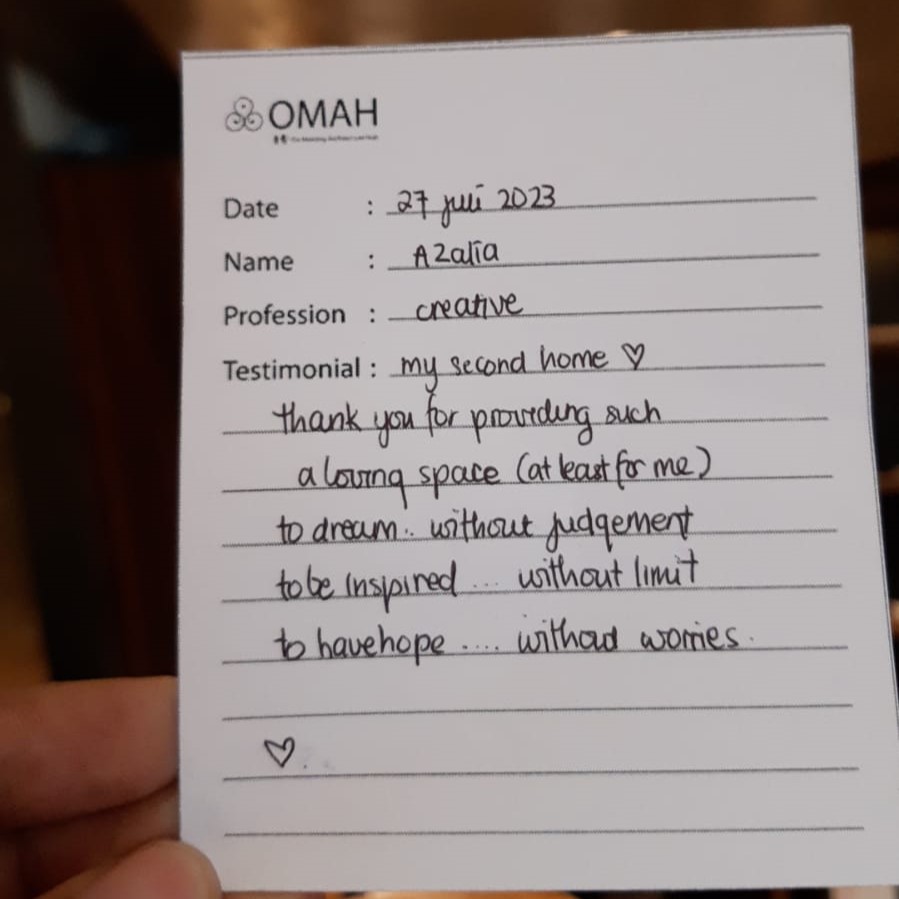 OMAH
Date : 27 juli 2023
Name : Azalia
Profession : creative
Testimonial : my second home ♡
thank you for providing such
a loving space (at least for me)
to dream.. without judgement
to be inspired ... without limit
to have hope .... without worries.
♡.